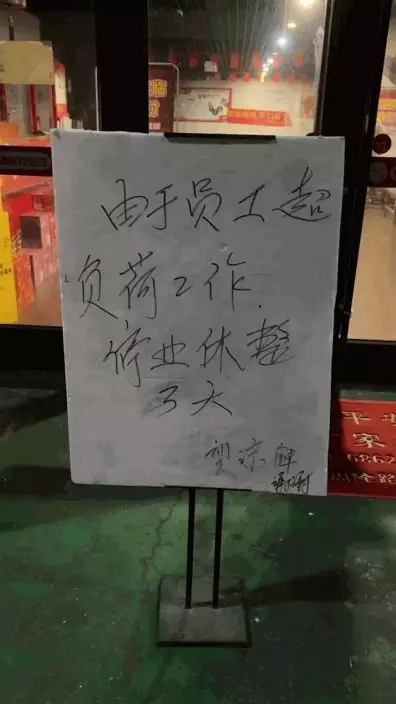 由于员工超
负荷工作.
停业休整
3天
望谅解
谢谢
平安
家
6862